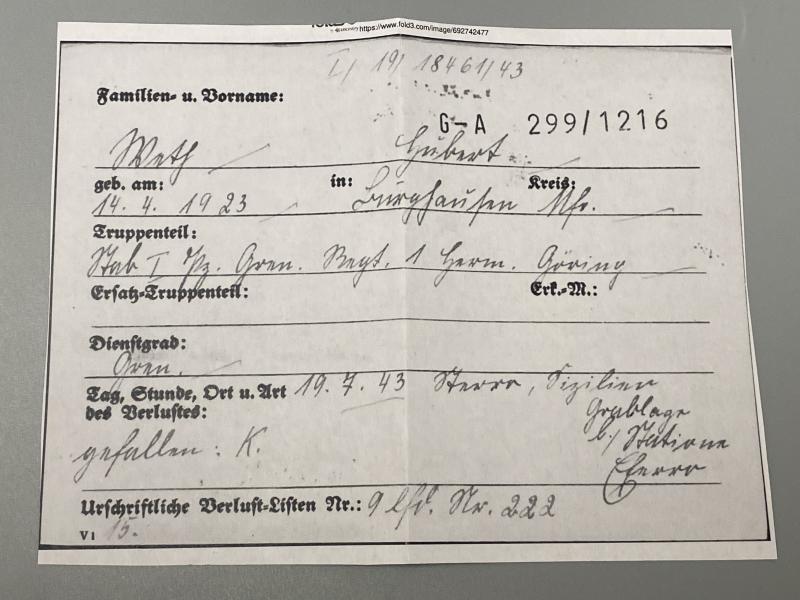 https://www.fold3.com/image/692742477
I/ 19/ 18461/43
Familien- u. Vorname:
G-A 299/1216
Weth Hubert
geb. am: in: Kreis:
14. 4. 1923 Burghausen Ufr.
Truppenteil:
Stab I Pz. Gren. Regt. 1 Herm. Göring
Ersatz-Truppenteil: Erk.-M.:
Dienstgrad:
Gren.
Tag, Stunde, Ort u. Art 19.7.43 Sterro, Sizilien
des Verlustes: Grablage
b/ Statione
gefallen: K. Eferro
Urschriftliche Verlust-Listen Nr.: 9 lfd. Nr. 222
V 1 15.